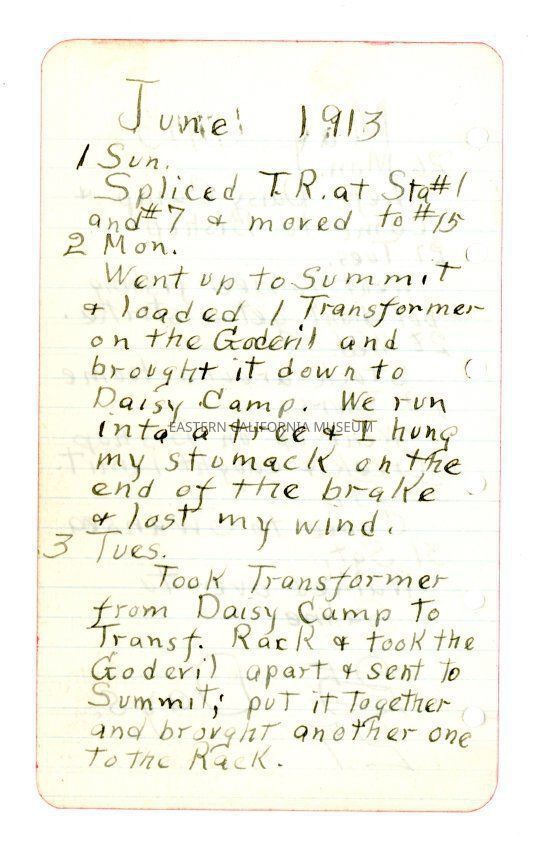 June 1913
1 Sun.
Spliced T.R. at Sta#1
and #7 & moved to #15
2 Mon.
Went up to Summit
& loaded 1 Transformer
on the Goderil and
brought it down to
Daisy Camp. We run
into a tree & I hung
EASTERN CALIFORNIA MUSEUM
my stomack on the
end of the brake
& lost my wind.
3 Tues.
Took Transformer
from Daisy Camp to
Transf. Rack & took the
Goderil apart & sent to
Summit; put it together
and brought another one
to the Rack.